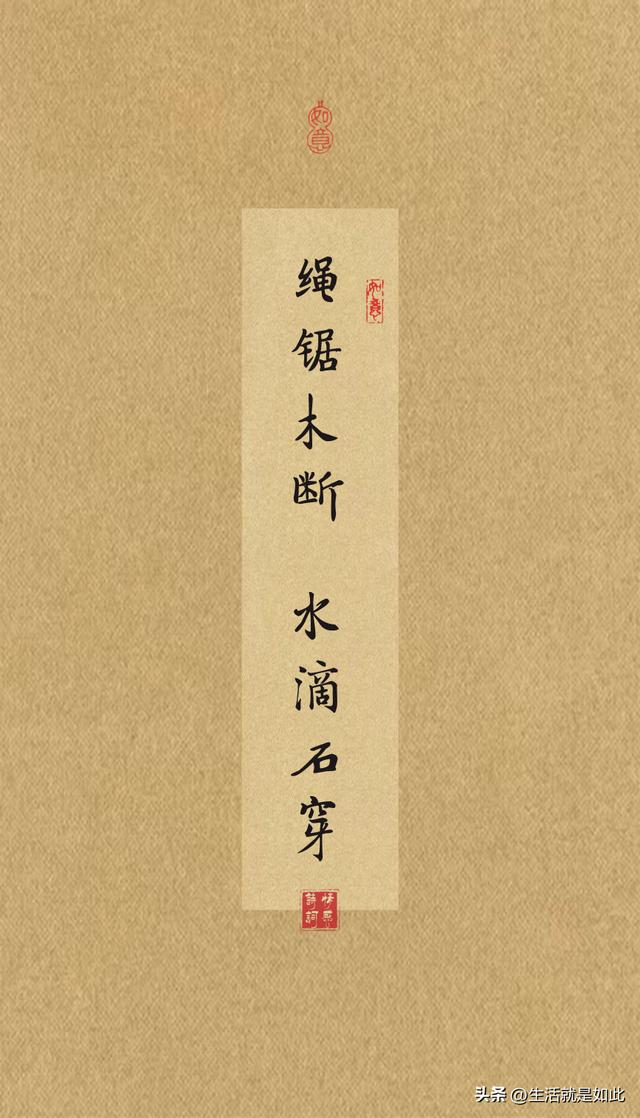 如意
如意
绳锯木断 水滴石穿
情系
詩詞
头条 @生活就是如此